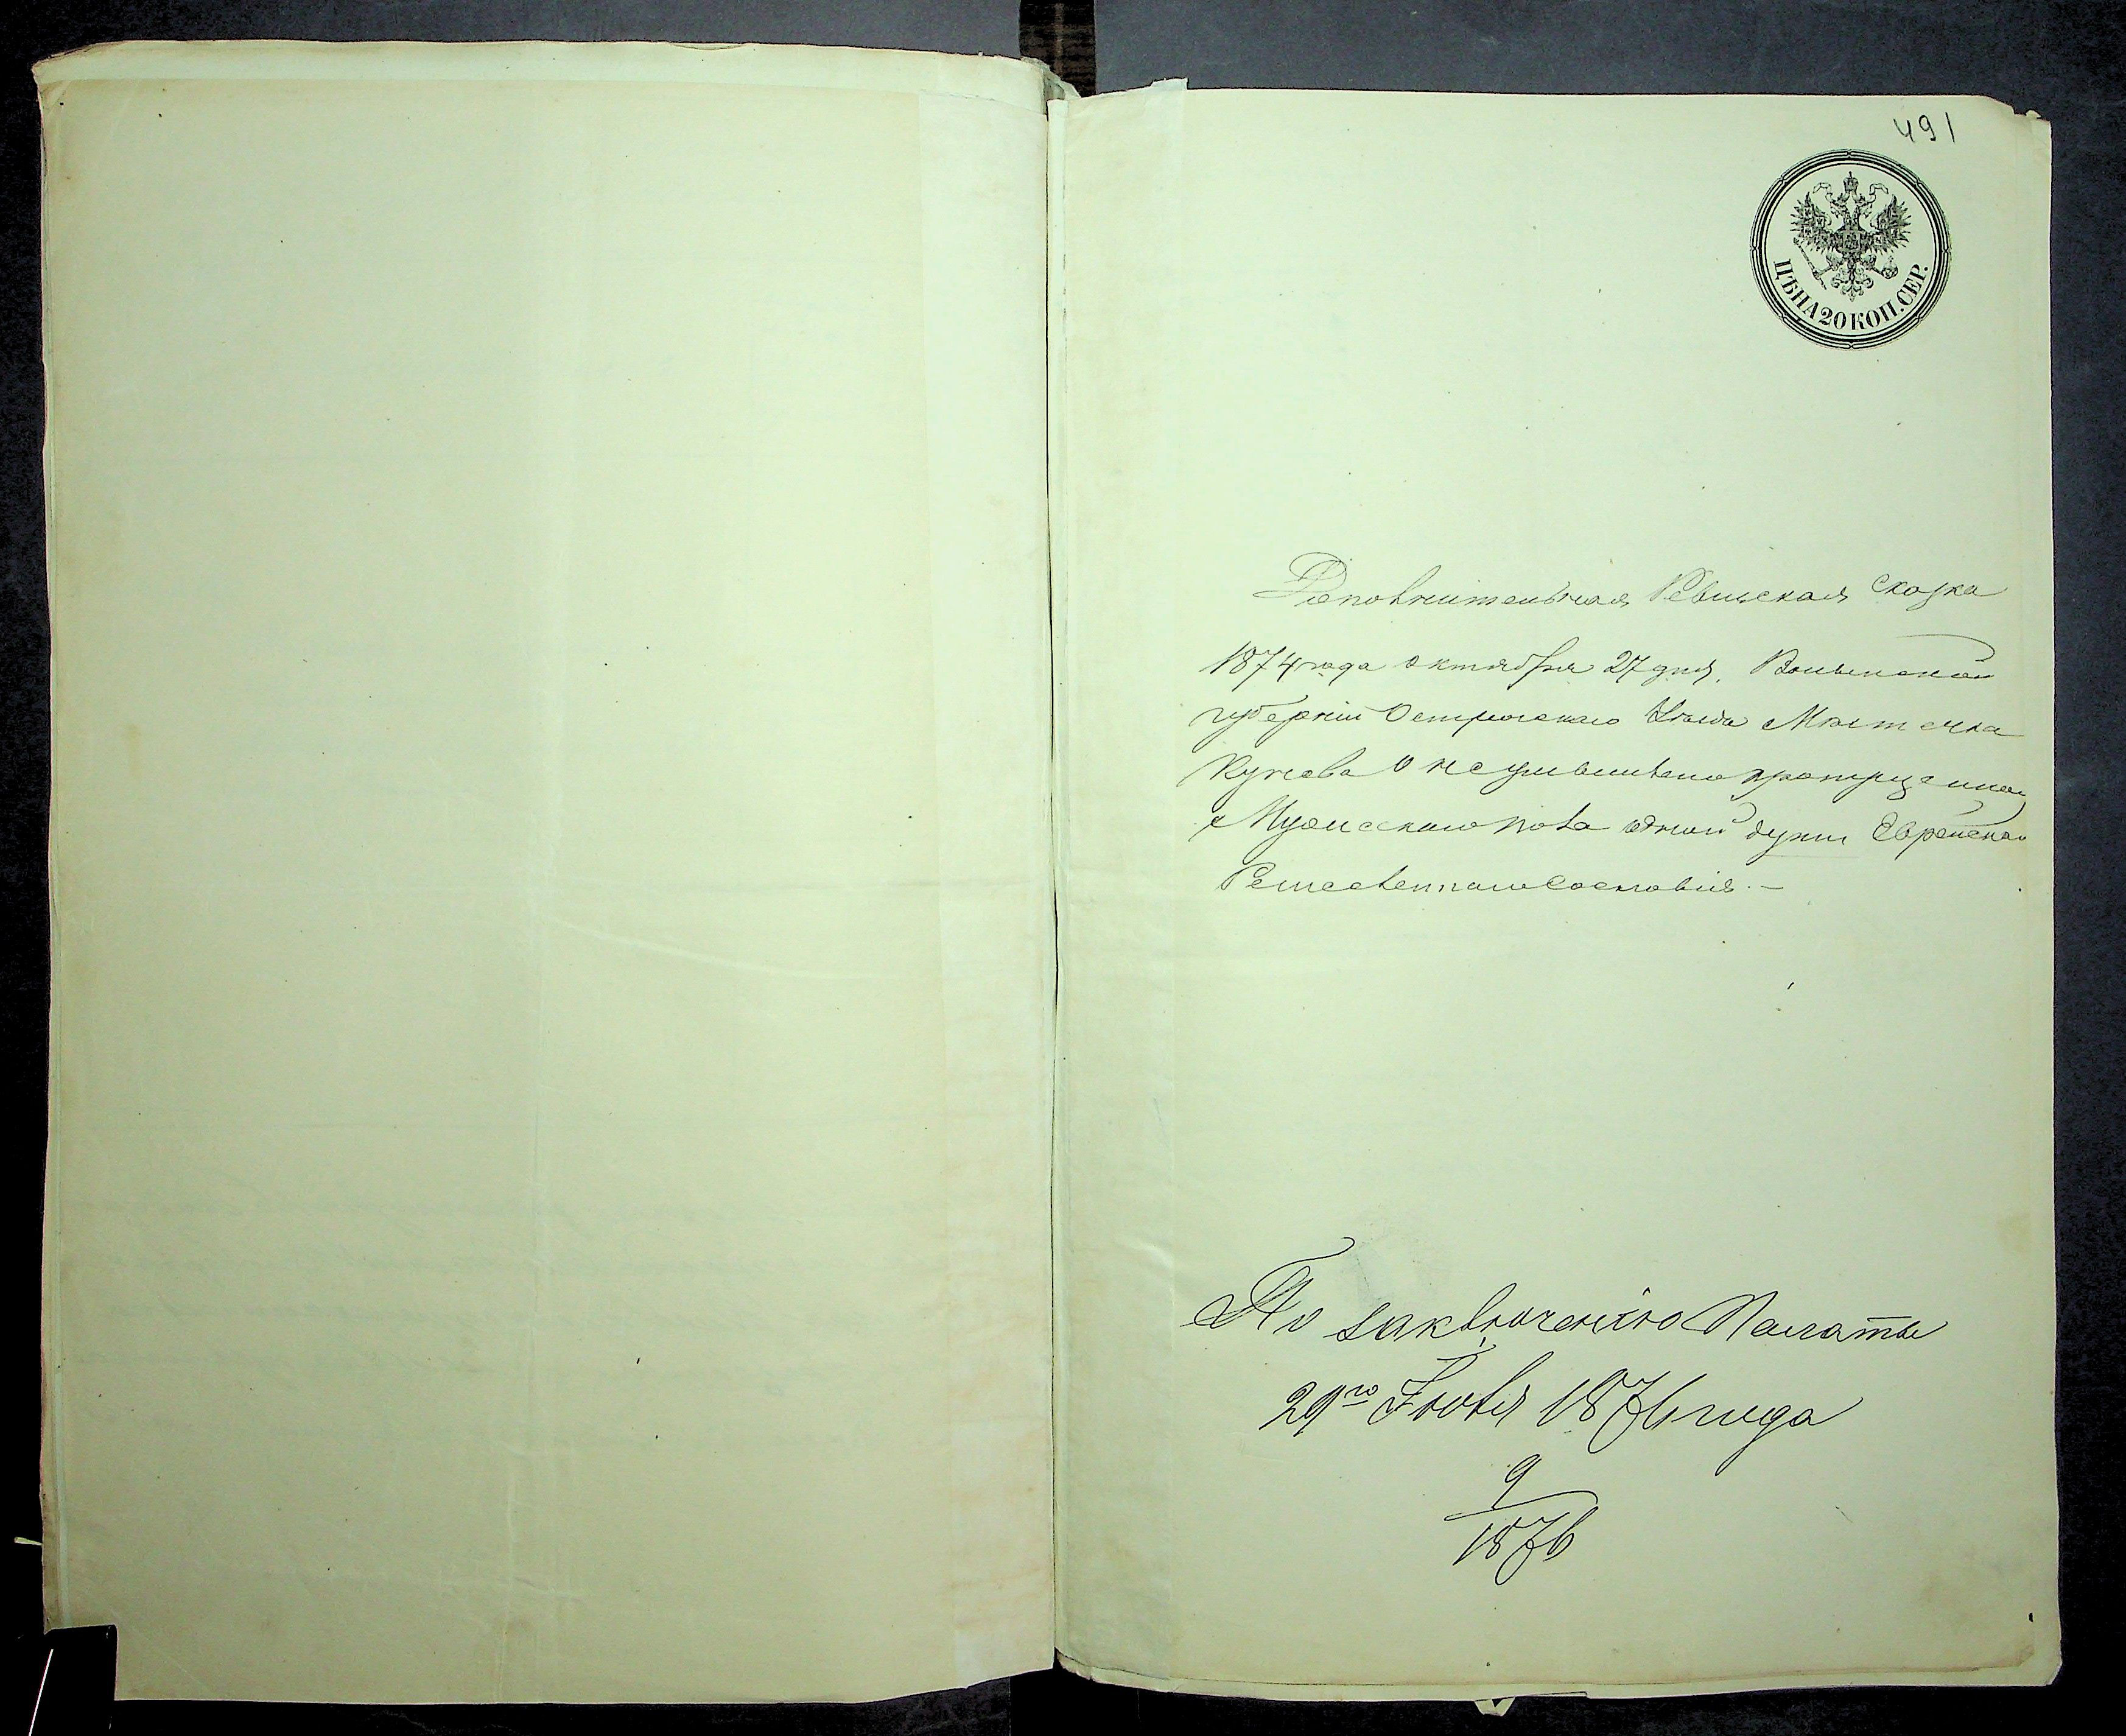 491
ЦѢНА 20 КОП. СЕР.
Дополнительная Ревизская Сказка
1874 года октября 27 дня, Волынской
губерніи Острогскаго Уѣзда Мѣстечка
Кунева О неумышленно пропущенной
Мужескаго пола одной души Еврейскаго
Ремесленнаго Сословія. —
По заключенію Палаты
29го Іюля 1876 года
9
1876